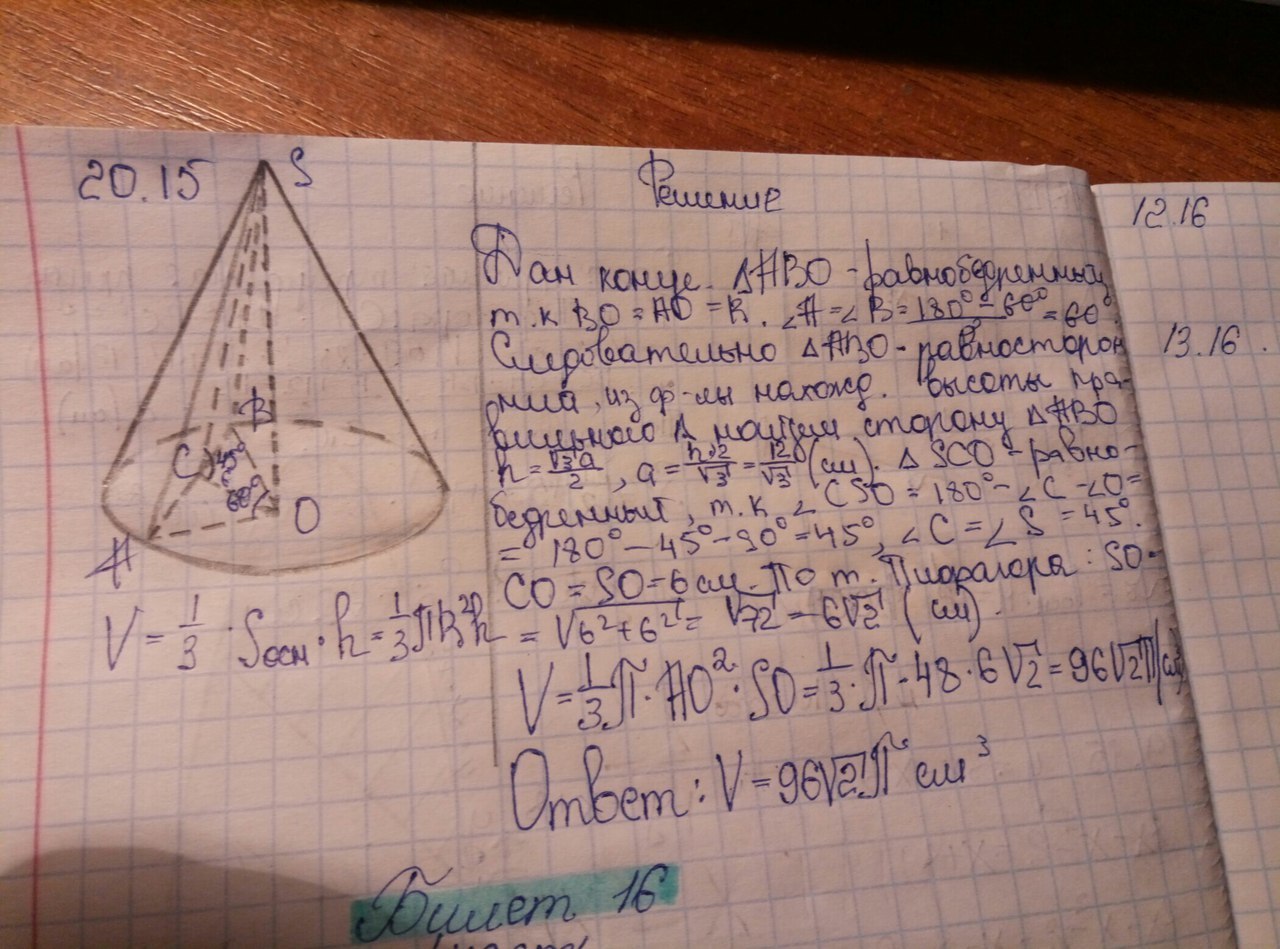 20.15
S
B
C
45°
60°
O
A
V = 1/3 · Sосн · h = 1/3 πR²h
Решение
Дан конус. ΔABO - равнобедренный,
т.к BO = AO = R. ∠A = ∠B = 180° - 60° = 60°
Следовательно ΔABO - равносторон
няя, из ф-лы нахожд. высоты пра-
вильного Δ найдем сторону ΔABO
h = √3a/2, a = h·2/√3 = 12/√3 (см). ΔSCO - равно-
бедренный, т.к ∠CSO = 180° - ∠C - ∠O =
= 180° - 45° - 90° = 45°, ∠C = ∠S = 45°.
CO = SO = 6 см. По т. Пифагора: SO =
= √6² + 6² = √72 = 6√2 (см).
V = 1/3 π · AO² · SO = 1/3 · π · 48 · 6√2 = 96√2π (см³)
Ответ: V = 96√2π см³
Билет 16
12.16
13.16.